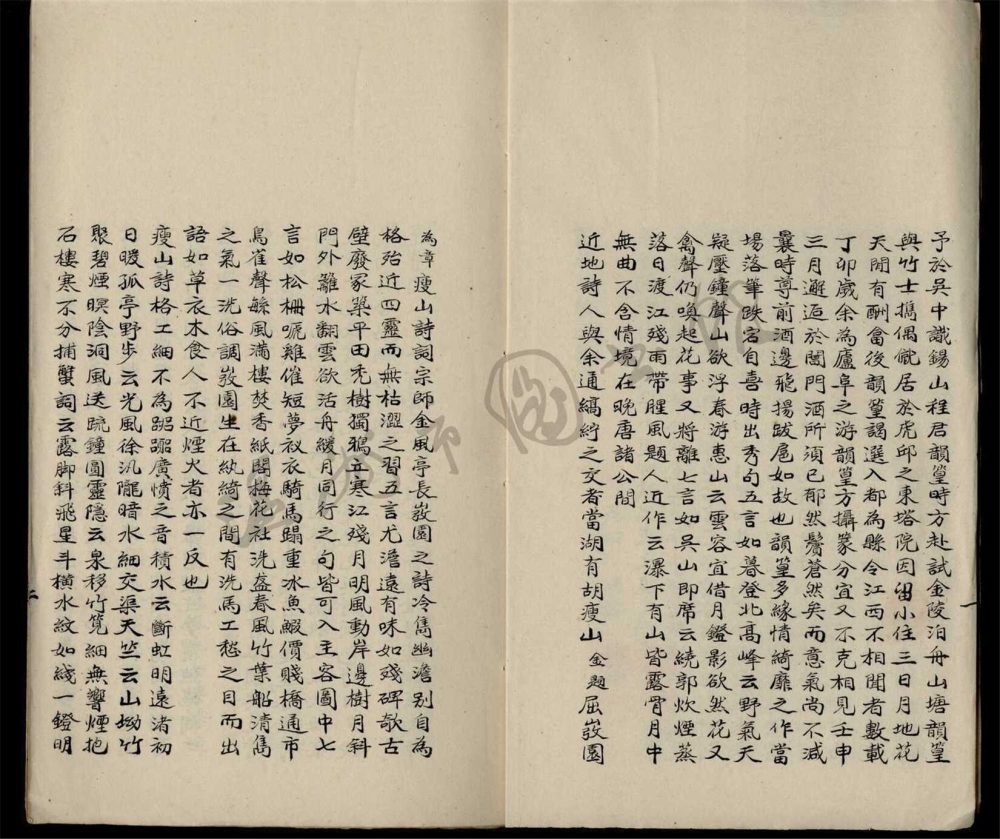 予於吳中識錫山程君韻篁時方赴試金陵泊舟山塘韻篁
與竹士擕偶僦居於虎邱之東塔院因留小住三日月地花
天閒有酬畣後韻篁謁選入都為縣令江西不相聞者數載
丁卯歲余為廬阜之游韻篁方攝篆分宜又不克相見壬申
三月邂逅於閶門酒所須已郁然鬢蒼然矣而意氣尚不減
曩時尊前酒邊飛揚跋扈如故也韻篁多緣情綺靡之作當
場落筆昳宕自喜時出秀句五言如暮登北高峰云野氣天
疑壓鐘聲山欲浮春游惠山云雲容宜借月鐙影欲然花又
禽聲仍喚起花事又將離七言如吳山即席云繞郭炊煙蒸
落日渡江殘雨帶腥風題人近作云瀑下有山皆露骨月中
無曲不含情境在晚唐諸公間
近地詩人與余通縞紵之交者當湖有胡瘦山金題屈弢園
為章瘦山詩詞宗師金風亭長弢園之詩冷雋幽澹別自為
格殆近四靈而無枯澀之習五言尤澹遠有味如殘碑欹古
壁廢冢築平田禿樹獨鴉立寒江殘月明風動岸邊樹月斜
門外籬水翻雲欲活舟緩月同行之句皆可入主容圖中七
言如松柵嗁雞催短夢衩衣騎馬蹋重冰魚鰕價賤橋通市
鳥雀聲緐風滿樓焚香紙閣梅花社洗盞春風竹葉船清雋
之氣一洗俗調弢園生在紈綺之間有洗馬工愁之目而出
語如草衣木食人不近煙火者亦一反也
瘦山詩格工細不為踀躢廣憤之音積水云斷虹明遠渚初
日暖孤亭野步云光風徐汎隴暗水細交渠天竺云山坳竹
聚碧煙暝陰洞風送疏鐘圓靈隱云泉移竹筧細無響煙抱
石樓寒不分捕蟹詞云露腳斜飛星斗橫水紋如綫一鐙明